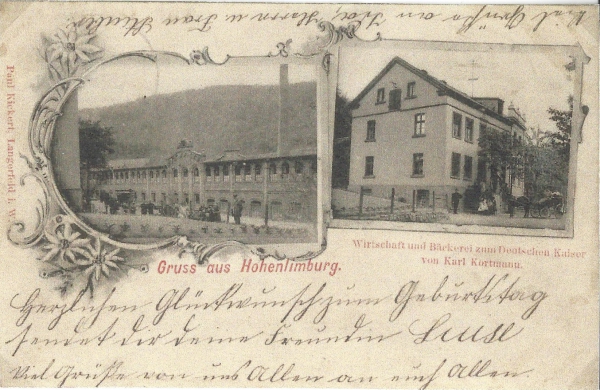 Viel Grüße an Frau, Herrn u Frau
Paul Kickert, Langerfeld i. W.
Wirtschaft und Bäckerei zum Deutschen Kaiser
von Karl Kortmann.
Gruss aus Hohenlimburg.
Herzlichen Glückwunsch zum Geburtstag
sendet dir deine Freundin
Viel Grüße von uns Allen an euch Allen.